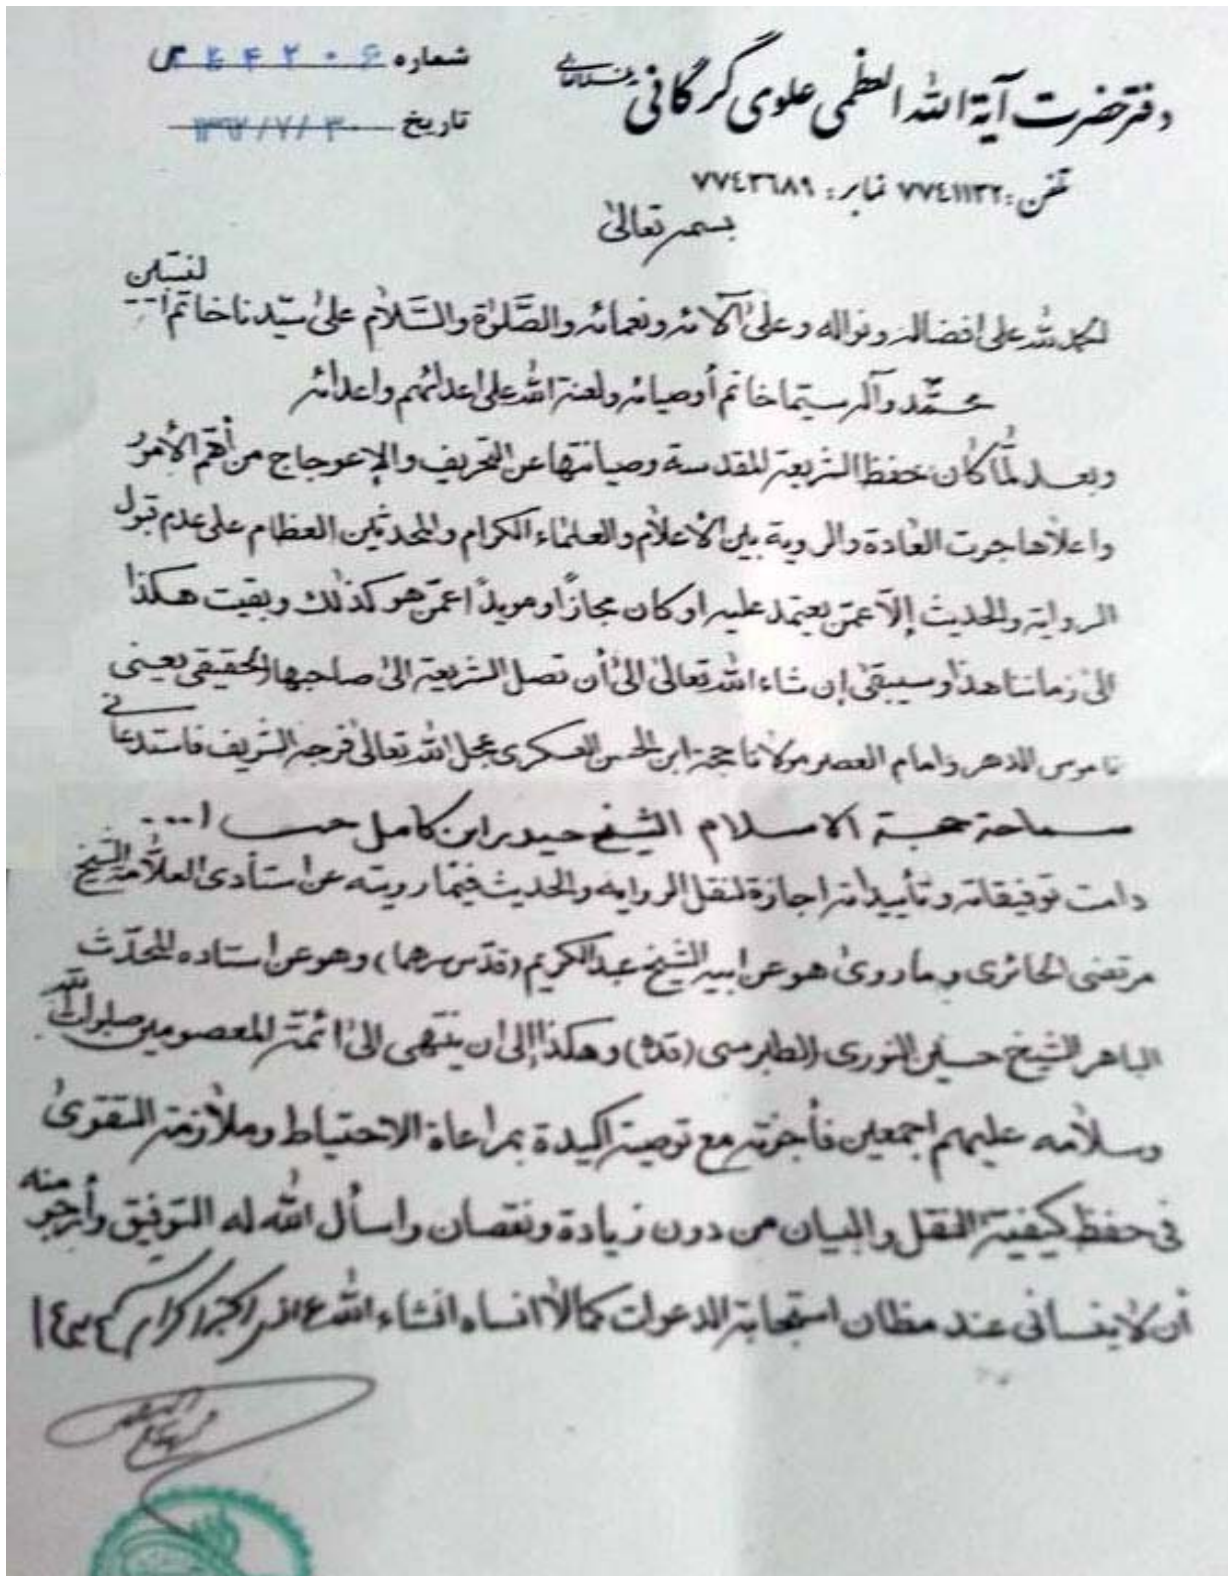 دفتر حضرت آیة الله العظمی علوی گرگانی
شماره
تاریخ ۱۳۹۲/۷/۳۰
تلفن: ۷۷٤۱۱۳۲ نمابر: ۷۷٤۳٦۸۹
بسمه تعالیٰ
الحمد لله علی افضاله ونواله وعلیٰ آلائه ونعمائه والصَّلوٰة والسَّلام علیٰ سیّدنا خاتم النبیین
محمّد وآله سیّما خاتم أوصیائه ولعنة الله علی اعدائهم واعدائه
وبعد لمّا کان حفظ الشریعة المقدسة وصیانتها عن التحریف والإعوجاج من أهمّ الأمور
واعلاها جرت العادة والرویة بین الأعلام والعلماء الکرام والمحدثین العظام علی عدم قبول
الروایة والحدیث إلّا عمّن یعتمد علیه او کان مجازًا ومویدًا عمّن هو کذلك وبقیت هکذا
الیٰ زماننا هذا وسیبقیٰ إن شاء الله تعالیٰ الیٰ أن تصل الشریعة الیٰ صاحبها الحقیقی یعنی
ناموس الدهر وامام العصر مولانا حجة ابن الحسن العسکری عجل الله تعالیٰ فرجه الشریف فاستدعانی
سماحة حجة الاسلام الشیخ حیدر ابن کامل حب ا...
دامت توفیقاته وتأییداته اجازة لنقل الروایة والحدیث فیما رویته عن استادی العلّامة الشیخ
مرتضی الحائری وما رویٰ هو عن ابیه الشیخ عبدالکریم (قدّس سرهما) وهو عن استاده المحدّث
الباهر الشیخ حسین النوری الطبرسی (قده) وهکذا إلی ان ینتهی الیٰ ائمّة المعصومین صلوات الله
وسلامه علیهم اجمعین فأجزته مع توصیة اکیدة بمراعاة الاحتیاط وملازمة التقویٰ
فی حفظ کیفیة النقل والبیان من دون زیادة ونقصان واسأل الله له التوفیق وأرجو منه
أن لا ینسانی عند مظان استجابة الدعوات کما لا انساه انشاء الله